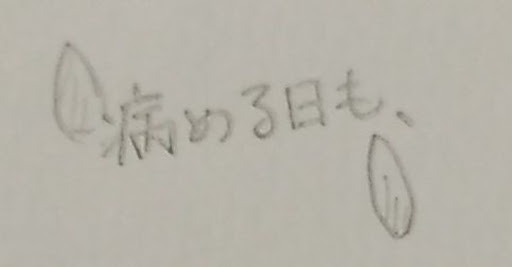 病める日も、